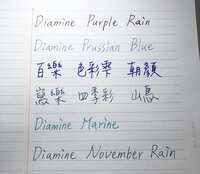 Diamine Purple Rain
Diamine Prussian Blue
百樂 色彩雫 朝顔
寫樂 四季彩 山
Diamine Marine
Diamine November Rain